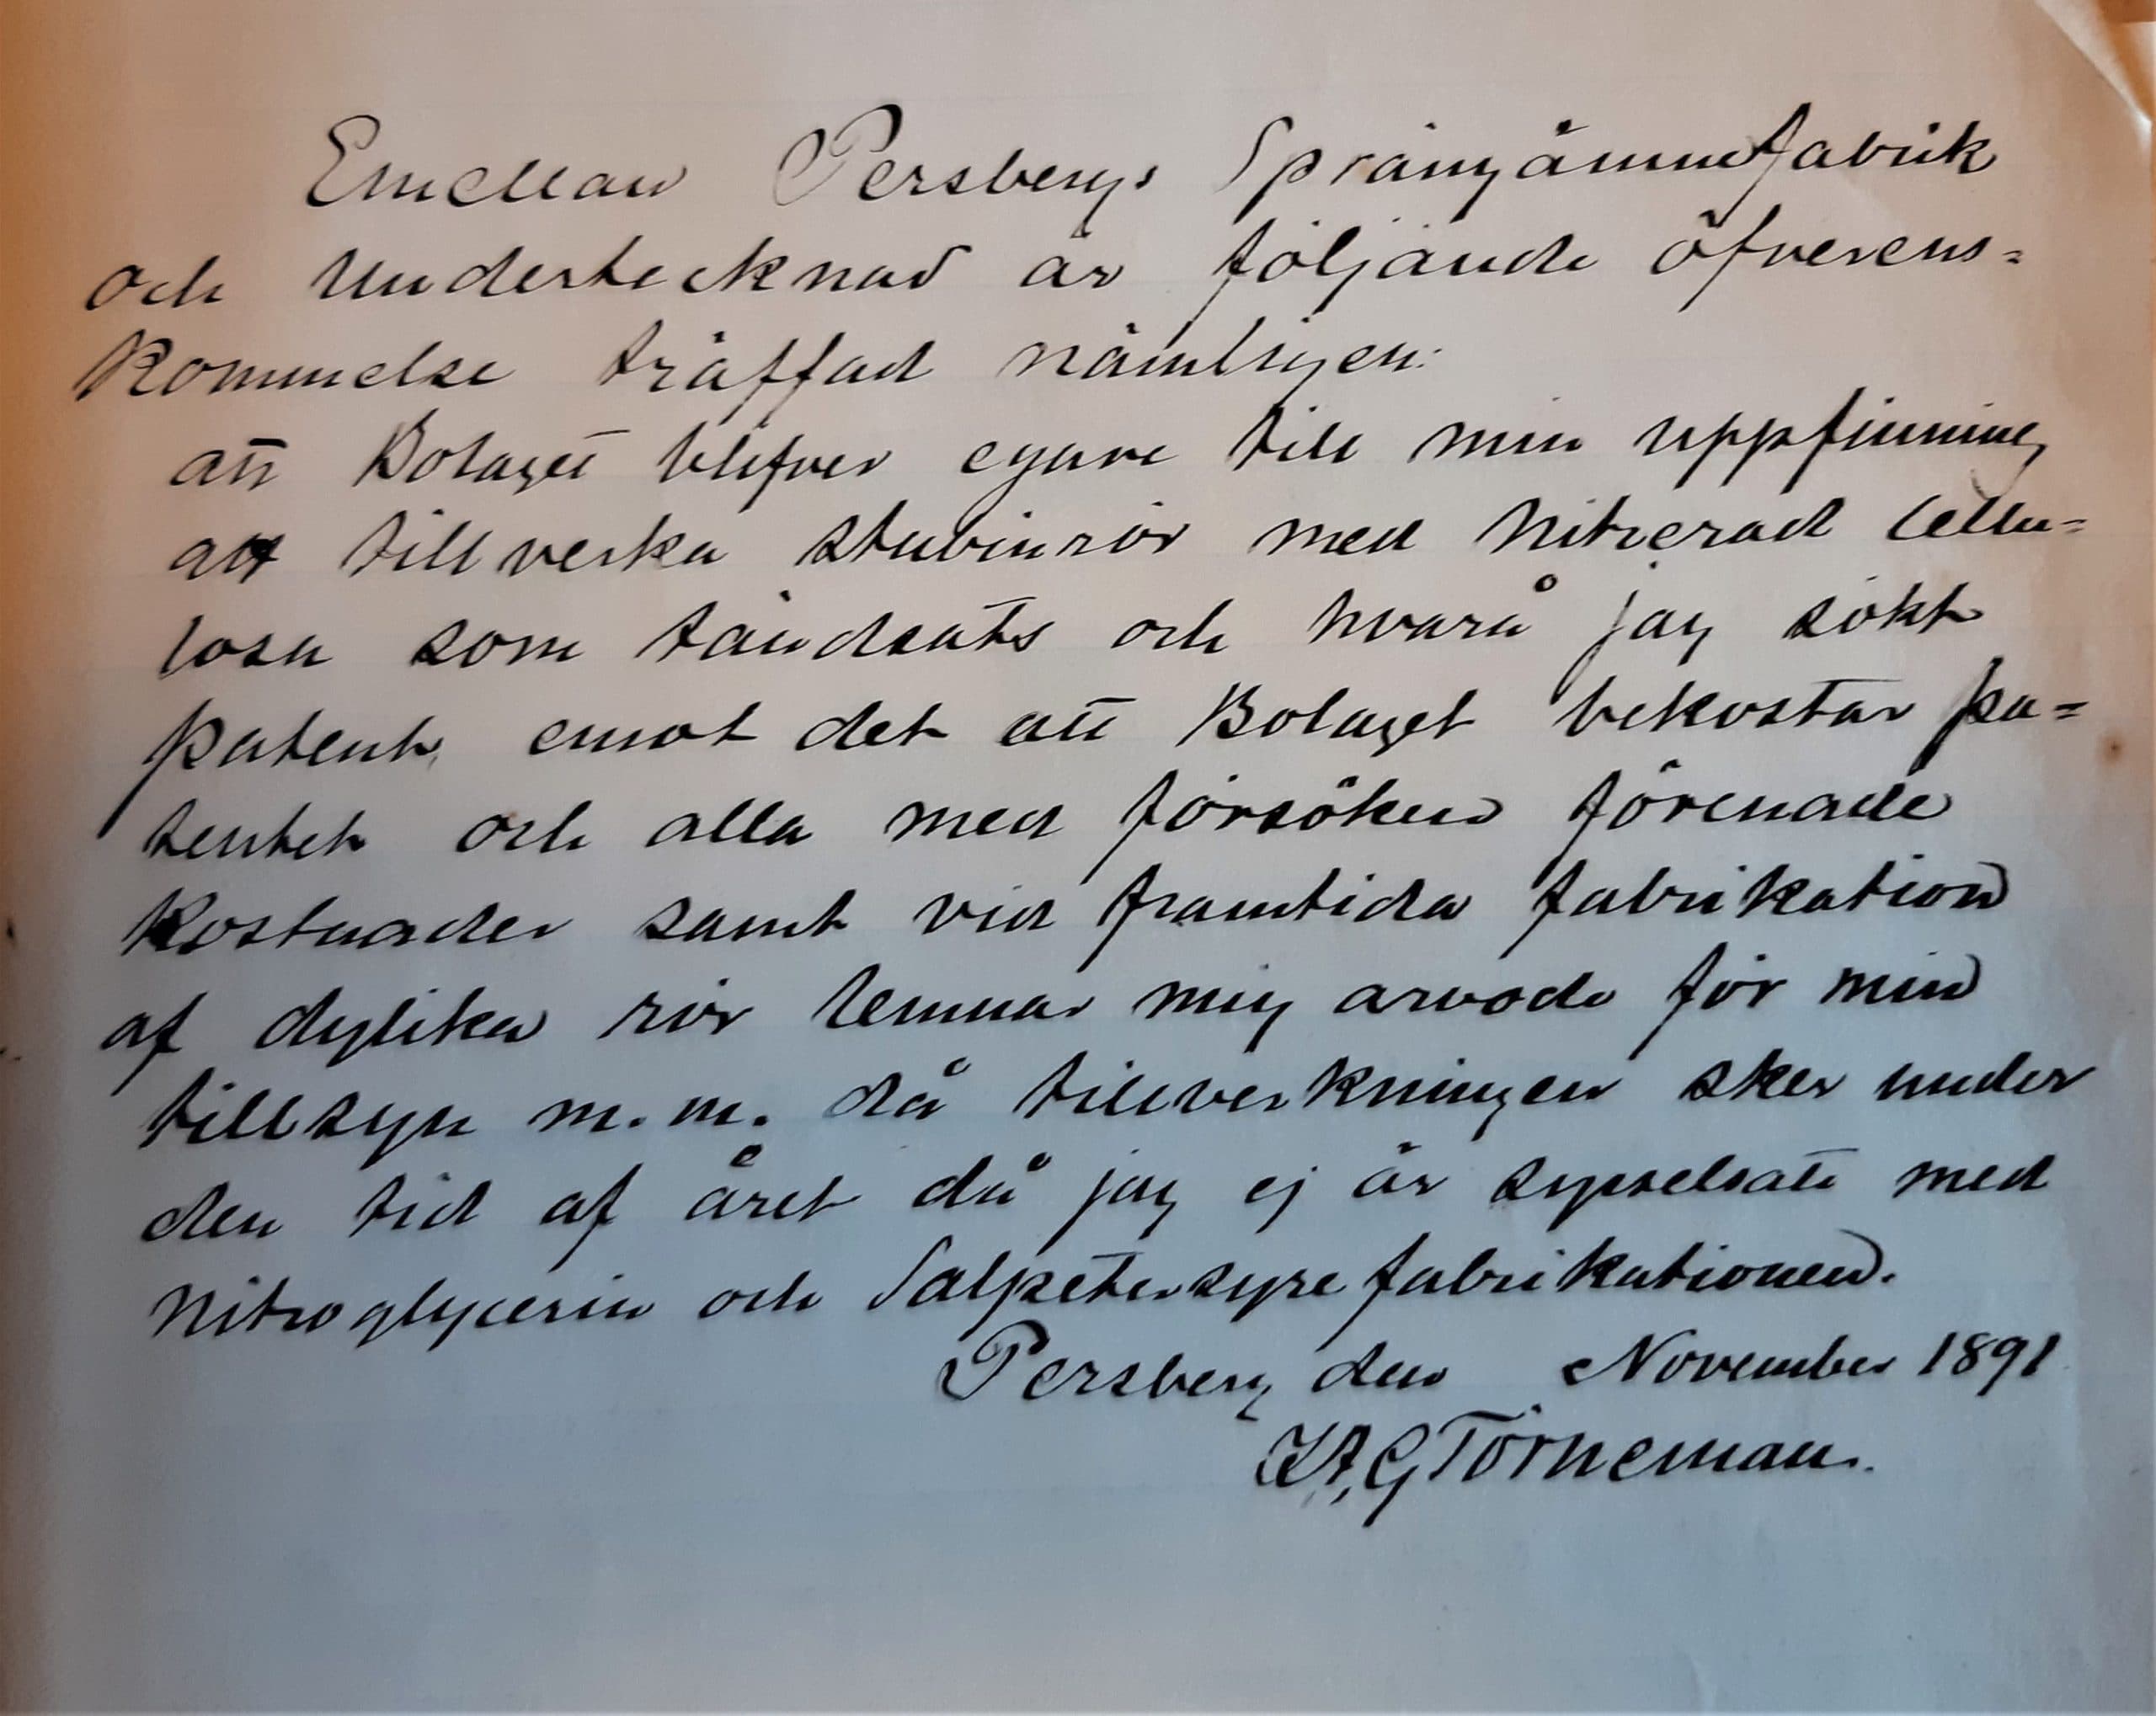 Emellan Persbergs Sprängämnefabrik
och Undertecknad är följande öfverens=
kommelse träffad nämligen:
att Bolaget blifver egare till min uppfinning
att tillverka stubinrör med Nitrerad Cellu=
losa som tändsats och hvarå jag sökt
patent, emot det att Bolaget bekostar pa=
tentet och alla med försöken förenade
kostnader samt vid framtida fabrikation
af dylika rör lemnar mig arvode för min
tillsyn m.m. då tillverkningen sker under
den tid af året då jag ej är sysselsatt med
Nitroglycerin och Salpetersyre fabrikationen.
Persberg den November 1891
G Törneman.